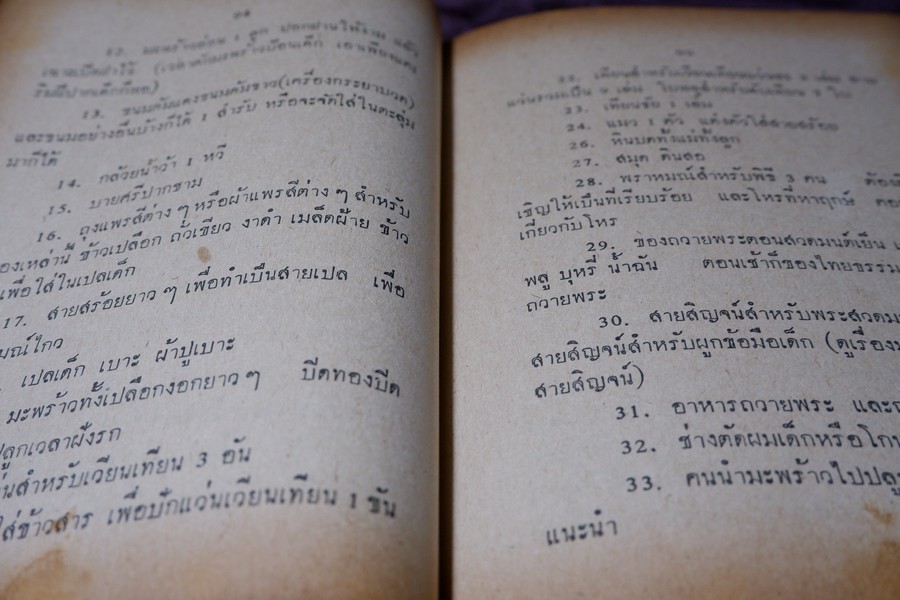 12. มะพร้าวอ่อน 1 ลูก ปอกฝานให้งาม แล้ว
เจาะเปิดฝาไว้
ริมฝีปากเด็กก็พอ)
13. ขนมต้มแดงขนมต้มขาว(เครื่องกระยาบวด)
และขนมอย่างอื่นบ้างก็ได้ 1 สำรับ หรือจะจัดใส่ในตะลุ่ม
มาก็ได้
14. กล้วยน้ำว้า 1 หวี
15. บายศรีปากชาม
16. ถุงแพรสีต่าง ๆ หรือผ้าแพรสีต่าง ๆ สำหรับ
องเหล่านี้ ข้าวเปลือก ถั่วเขียว งาดำ เมล็ดฝ้าย ข้าว
เพื่อใส่ในเปลเด็ก
17. สายสร้อยยาว ๆ เพื่อทำเป็นสายเปล เพื่อ
มณ์ไกว
เปลเด็ก เบาะ ผ้าปูเบาะ
มะพร้าวทั้งเปลือกงอกยาว ๆ ปิดทองปิด
ปลูกเวลาฝังรก
นสำหรับเวียนเทียน 3 อัน
ใส่ข้าวสาร เพื่อปักแว่นเวียนเทียน 1 ขัน
23. เทียนชัย 1 เล่ม
24. แมว 1 ตัว แต่งตัวใส่สายสร้อย
26. หินบดทั้งแม่ทั้งลูก
27. สมุด ดินสอ
28. พราหมณ์สำหรับพิธี 3 คน ต้อง
เชิญให้เป็นที่เรียบร้อย และโหรที่หาฤกษ์
เกี่ยวกับโหร
29. ของถวายพระตอนสวดมนต์เย็น
พลู บุหรี่ น้ำฉัน ตอนเช้าก็ของไทยธรรม
ถวายพระ
30. สายสิญจน์สำหรับพระสวดม
สายสิญจน์สำหรับผูกข้อมือเด็ก (ดูเรื่อง
สายสิญจน์)
31. อาหารถวายพระ และ
32. ช่างตัดผมเด็กหรือโกน
33. คนนำมะพร้าวไปปลู
แนะนำ